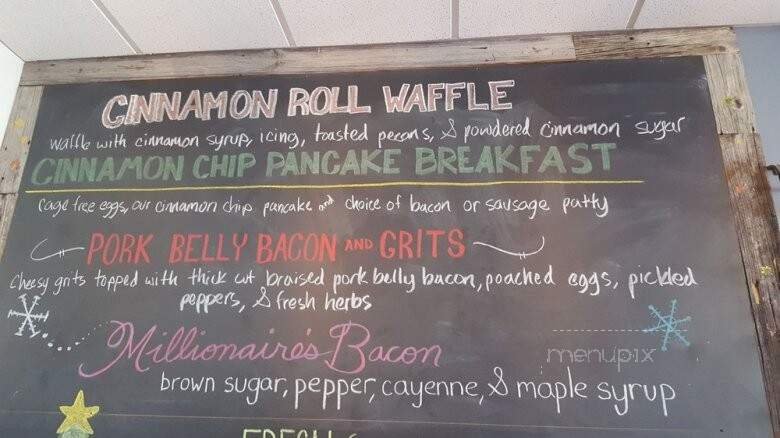 CINNAMON ROLL WAFFLE
Waffle with cinnamon syrup, icing, toasted pecans, & powdered cinnamon sugar
CINNAMON CHIP PANCAKE BREAKFAST
Cage free eggs, our cinnamon chip pancake and choice of bacon or sausage patty
PORK BELLY BACON AND GRITS
Cheesy grits topped with thick cut braised pork belly bacon, poached eggs, pickled
peppers, & fresh herbs
Millionaire's Bacon
menupix
brown sugar, pepper, cayenne, & maple syrup